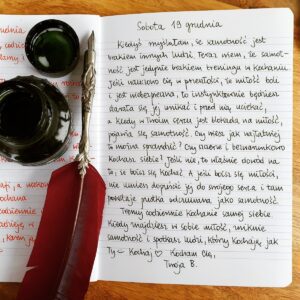 Sobota 19 grudnia
Kiedyś myślałam, że samotność jest
brakiem innych ludzi. Teraz wiem, że samot-
ność jest jedynie brakiem treningu w kochaniu.
Jeśli nauczono Cię w przeszłości, że miłość boli
i jest niebezpieczna, to instynktownie będziesz
starała się jej unikać i przed nią uciekać,
a kiedy w Twoim sercu jest blokada na miłość,
pojawia się samotność. Czy wiesz jak najłatwiej
to można sprawdzić? Czy dobrze i bezwarunkowo
kochasz siebie? Jeśli nie, to właśnie dowód na
to, że boisz się kochać. A jeśli boisz się miłości,
nie umiesz dopuścić jej do swojego serca i tam
powstaje pustka odczuwana jako samotność.
Trenuj codziennie kochanie samej siebie
Kiedy znajdziesz w sobie miłość, zniknie
samotność i spotkasz ludzi, którzy kochają, jak
Ty – Kochaj ♡ Kocham Cię,
Twoja B.